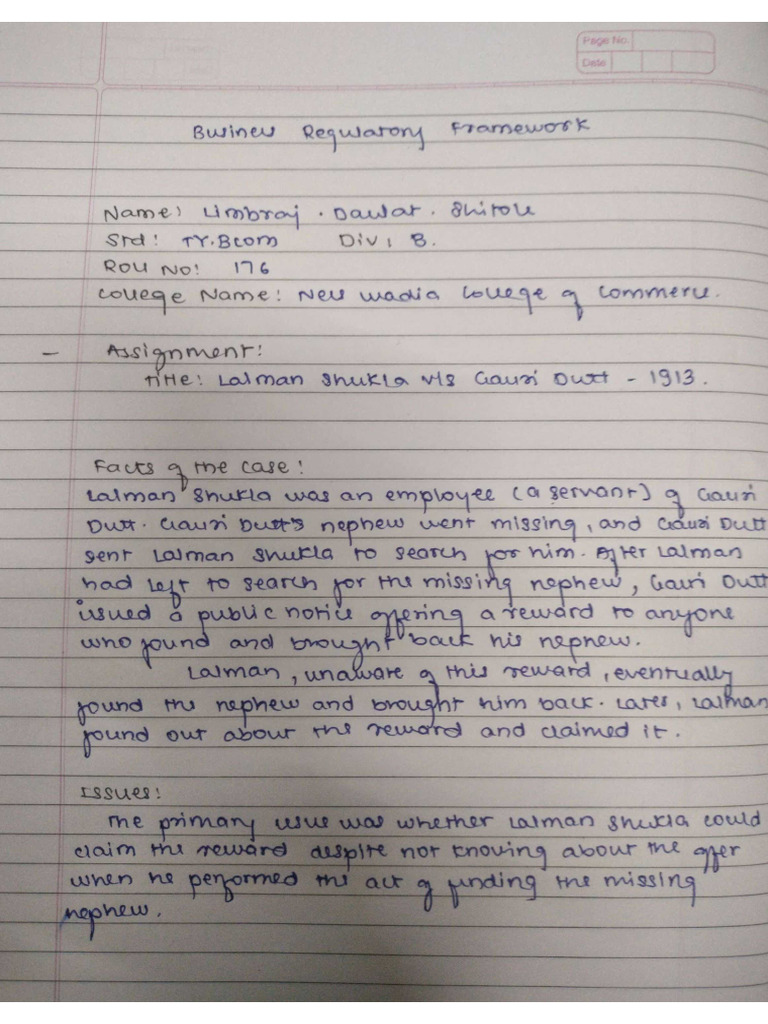 Page No.
Date
Business Regulatory Framework
Name: Limbraj . Dawlat . Shitole
Std: TY.Bcom Div: B.
Roll No: 176
College Name: Ness Wadia College of Commerce.
- Assignment:
Title: Lalman Shukla v/s Gauri Dutt - 1913.
Facts of the case:
Lalman Shukla was an employee (a servant) of Gauri
Dutt. Gauri Dutt's nephew went missing, and Gauri Dutt
sent Lalman Shukla to search for him. After Lalman
had left to search for the missing nephew, Gauri Dutt
issued a public notice offering a reward to anyone
who found and brought back his nephew.
Lalman, unaware of this reward, eventually
found the nephew and brought him back. Later, Lalman
found out about the reward and claimed it.
Issues:
The primary issue was whether Lalman Shukla could
claim the reward despite not knowing about the offer
when he performed the act of finding the missing
nephew.